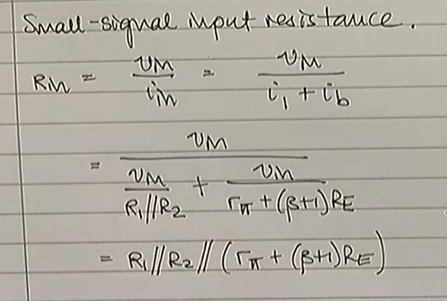 Small-signal input resistance.
Rin = vin/iin = vin/(i1 + ib)
= vin/(vin/(R1//R2) + vin/(rπ + (β+1)RE))
= R1//R2//(rπ + (β+1)RE)